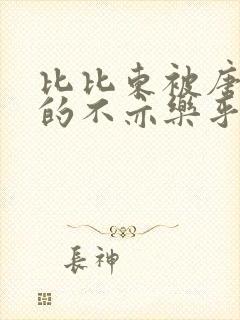 比比东被唐
的不亦樂乎
長神